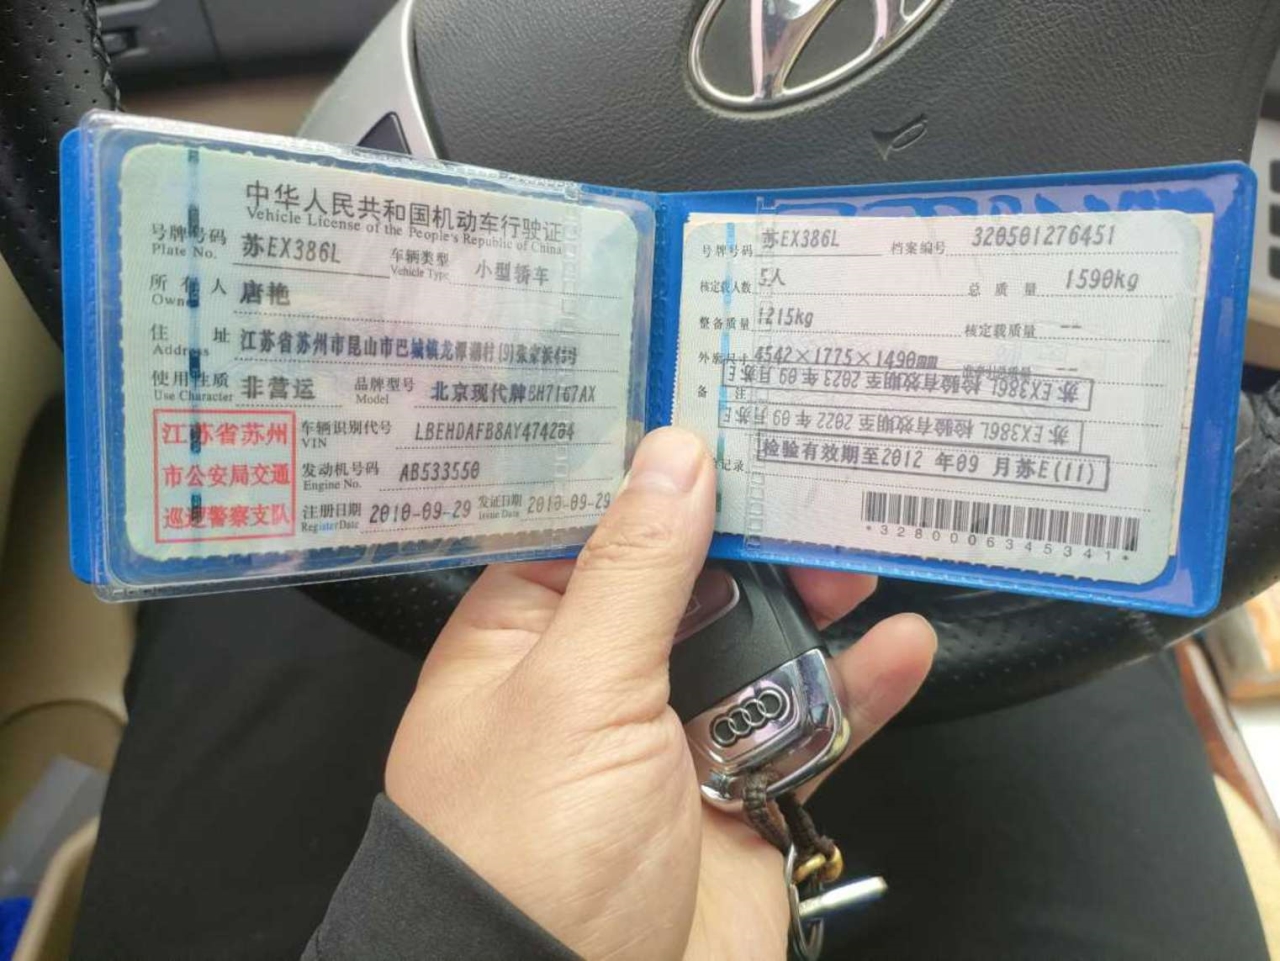 中华人民共和国机动车行驶证
Vehicle License of the People's Republic of China
号牌号码 苏EX386L 车辆类型 小型轿车
Plate No. Vehicle Type
所有人 唐艳
Owner
住址 江苏省苏州市昆山市巴城镇龙潭湖村(9)张家浜
Address
使用性质 非营运 品牌型号 北京现代牌BH7167AX
Use Character Model
江苏省苏州
市公安局交通
巡逻警察支队
车辆识别代号 LBEHDAFB8AY474204
VIN
发动机号码 AB533550
Engine No.
注册日期 2010-09-29 发证日期 2010-09-29
Register Date Issue Date
号牌号码 苏EX386L 档案编号 320501276451
核定载人数 5人 总质量 1590kg
整备质量 1215kg 核定载质量 --
外廓尺寸 4542×1775×1490mm
苏EX386L 检验有效期至 2023 年 09 月 苏E
备注
苏EX386L 检验有效期至 2022 年 09 月 苏E
记录 检验有效期至2012 年09 月苏E(11)
*3280006345341*